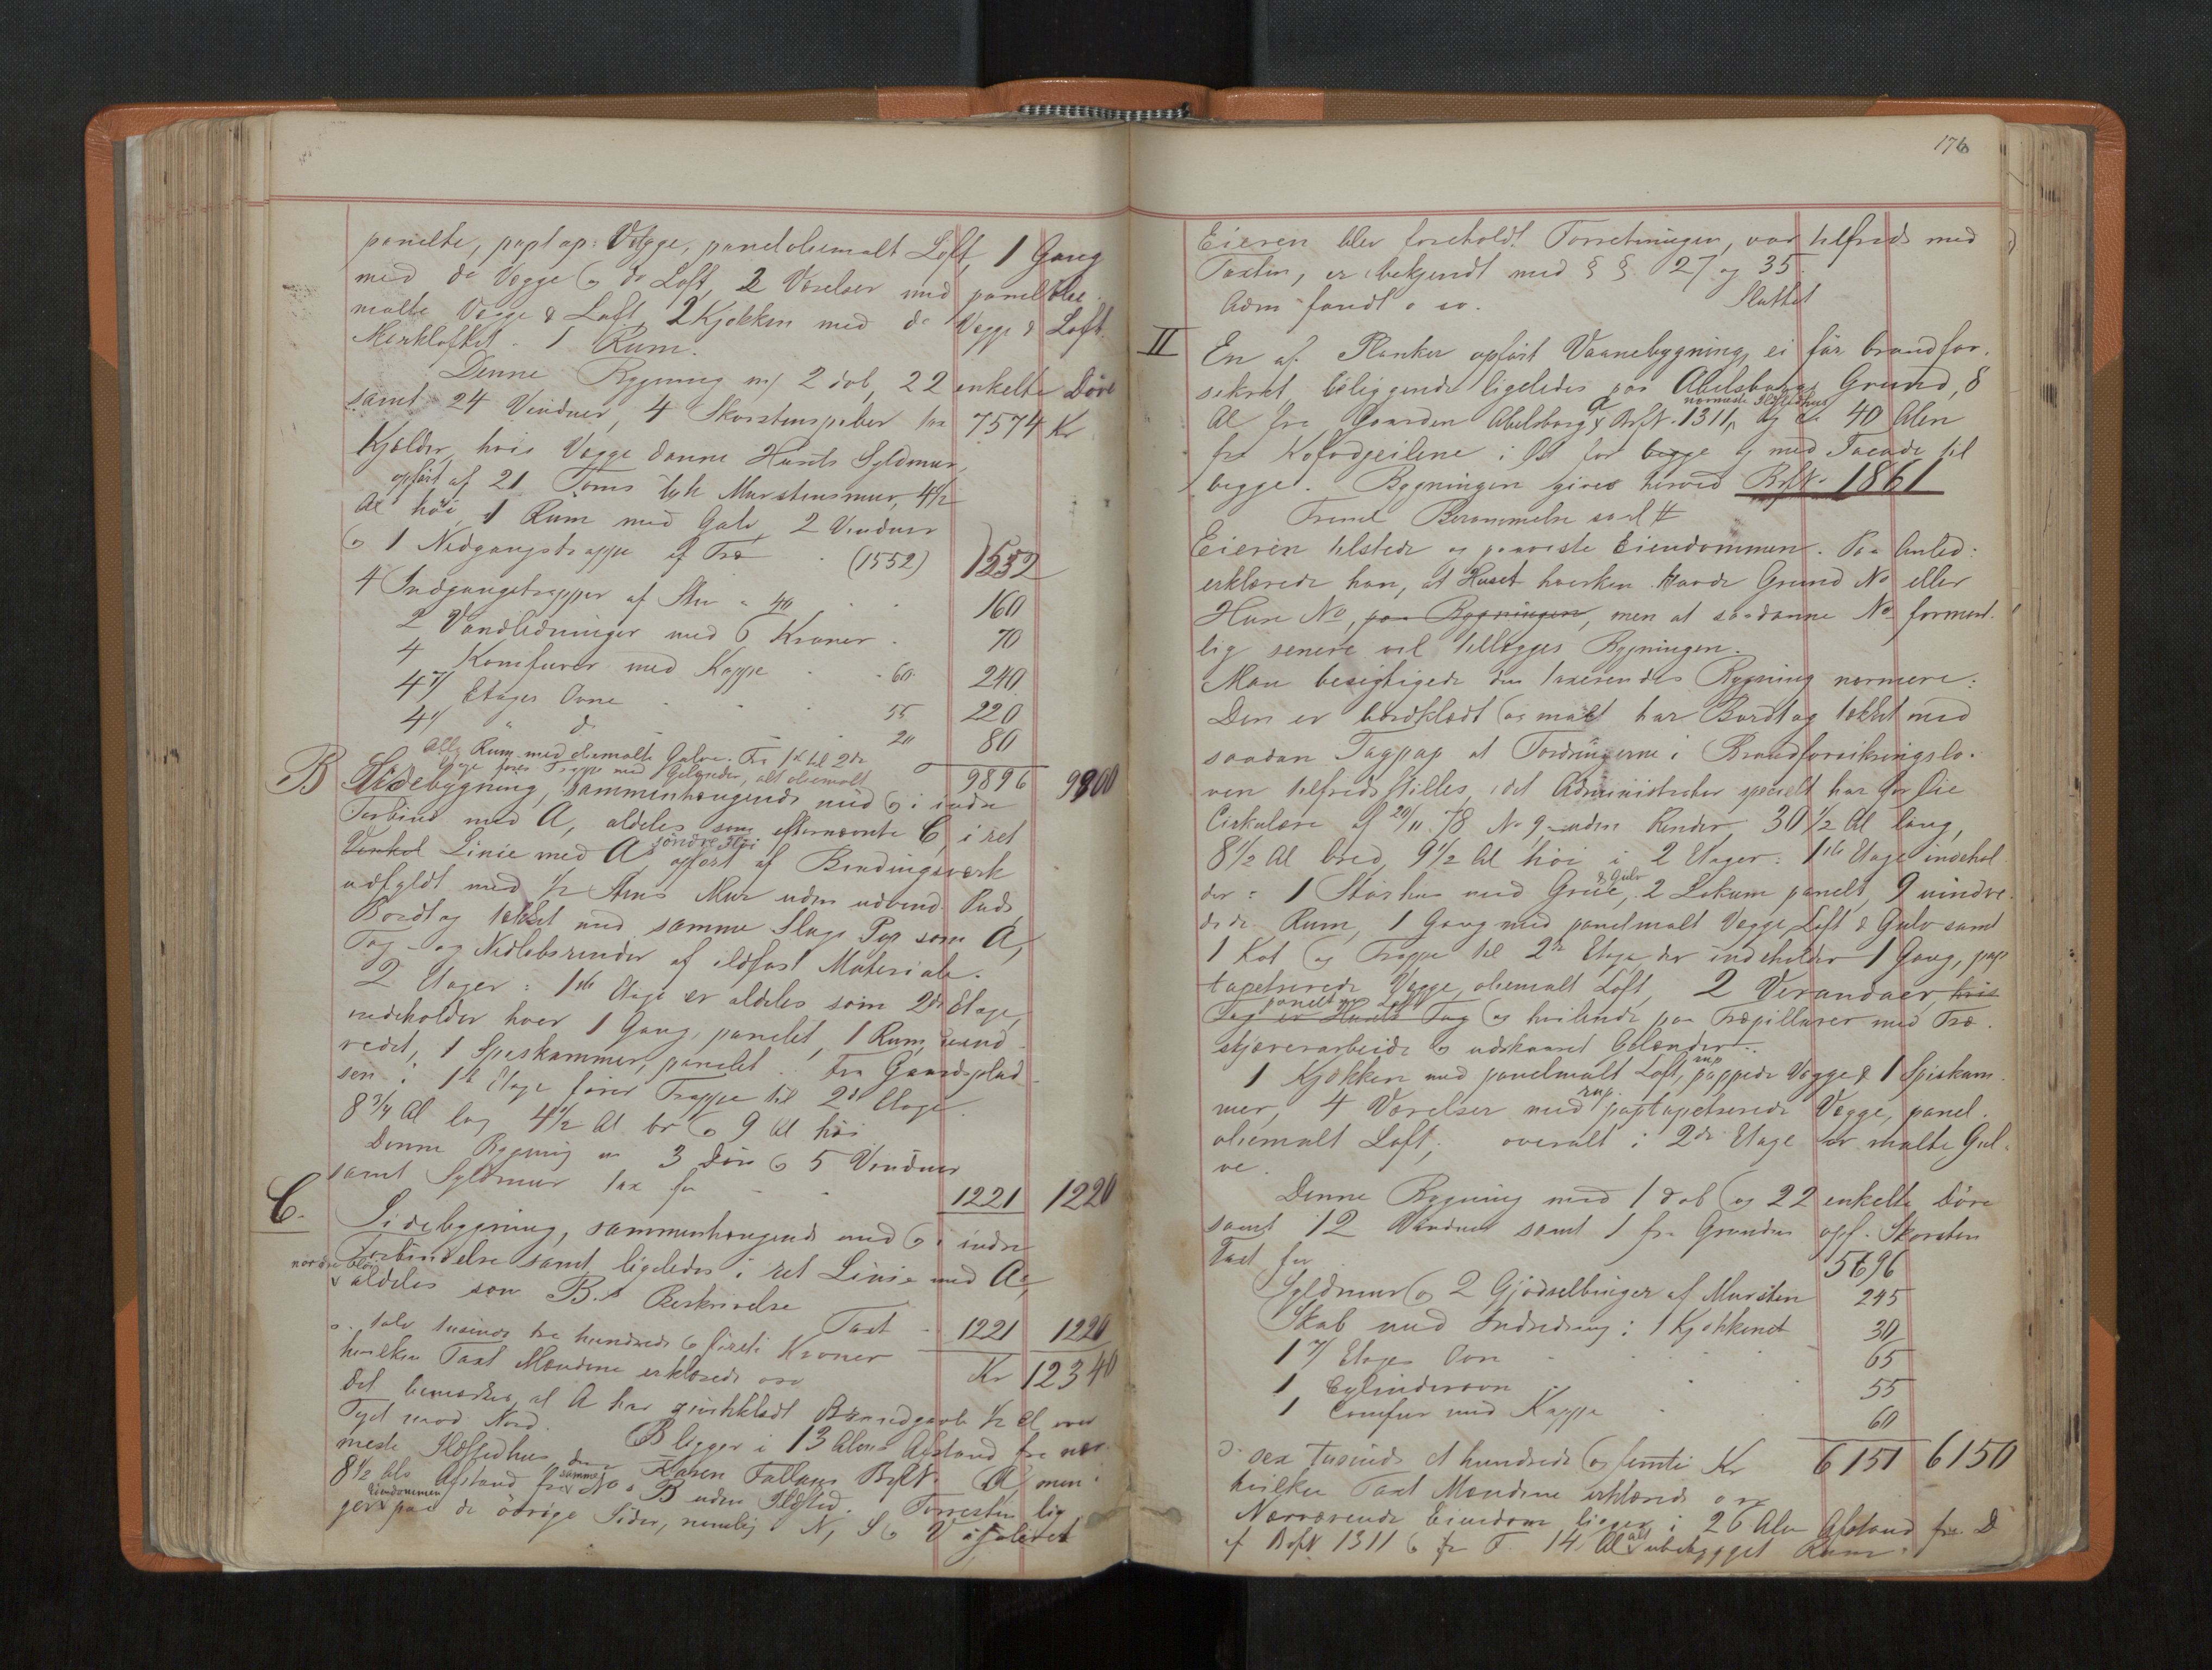 panelte, paptap: Vægge, paneloliemalt Loft, 1 Gang
med do Vægge & do Loft, 2 Værelser med panelolie-
malte Vægge & Loft, 2 Kjøkken med do Vægge & Loft.
Mørkloftet. 1 Rum.
Denne Bygning m/ 2 dob, 22 enkelte Döre
samt 24 Vinduer, 4 Skorstenspiber tax 7574 Kr
Kjælder, hvis Vægge danne Husets Syldmur,
opført af 21 Toms tyk Murstensmur, 4½
Al høi, 1 Rum med Gulv, 2 Vinduer
& 1 Nedgangstrappe af Træ (1552) 1552
4 Indgangstrapper af Sten a 40 160
2 Vandledninger med 6 Kraner 70
4 Komfurer med Kappe 60 240
4 Etages Ovne 55 220
4 " do 20 80
Alle Rum med oliemalte Gulve. Fra 1ste til 2den
Etage fører Trappe med Gelænder, alt oliemalt 9896 9900
B Sidebygning, sammenhængende med & i indre
Forbind med A, aldeles som efternævnte C, i ret
Vinkel Linie med A's söndre Fløi opført af Bindingsværk
udfyldt med ½ Stens Mur uden udvend Puds,
Bordtag tækket med samme Slags Pap som A,
Tag- og Nedløbsrender af ildfast Materiale.
2 Etager: 1ste Etage er aldeles som 2den Etage,
indeholder hver 1 Gang, panelet, 1 Rum, uind-
redet, 1 Spiskammer, panelet. Fra Gaardsplad-
sen i 1ste Etage fører Trappe til 2den Etage.
8¾ Al lag 4½ Al br & 9 Al høi
Denne Bygning m 3 Döre & 5 Vinduer
samt Syldmur tax for 1221 1220
C. Sidebygning, sammenhængende med & i indre
Forbindelse samt ligeledes i ret Linie med A's
nordre Fløi aldeles som B.s Beskrivelse
Taxt 1221 1220
o: tolv tusinde tre hundrede & firti Kroner Kr 12340
hvilken Taxt Mændene erklærede osv
Det bemærkes, at A har Brandgavl ½ Al over
Taget mod Nord. B ligger i 13 Alens Afstand fra nær-
meste Ildstedhus, Karen Fallans BrfN. A, men i
8½ Als Afstand fra samme No.s B uden Ildsted. Forresten lig-
ger Eiendommen paa de øvrige Sider, nemlig N, S & V isoleret
176
Eieren blev foreholdt Forretningen, var tilfreds med
Taxten, er bekjendt med § § 27 og 35.
Adm fandt o sv. Sluttet
II En af Planker opført Vaanebygning, ei før brandfor-
sikret, beliggende ligeledes paa Abelsborgs Grund, 8
Al fra Gaarden Abelsborgs BrfN. 1311, nærmeste Ildstedhus og ca 40 Alen
fra Kofodgeilene i Øst for begge & med Facade til
begge. Bygningen gives herved BrfN. 1861
Fremd Berammelse sol #
Eieren tilstede og paaviste Eiendommen. Paa Anled:
erklærede han, at Huset hverken havde Grund No eller
Hus No, paa Bygningen, men at saadanne No forment-
lig senere vil tillægges Bygningen.
Man besigtigede den taxerendes Bygning nærmere:
Den er bordklædt og malt har Bordtag tækket med
saadan Tagpap at Fordringerne i Brandforsikringslo-
ven tilfredsstilles, idet Administrator specielt har for Øie
Cirkulære af 20/11 78 No 9, uden Render, 30½ Al lang,
8½ Al bred, 9½ Al høi i 2 Etager: 1ste Etage indehol-
der: 1 Størhus med Grue, & Gulv 2 Lokum panelt, 9 uindre-
dede Rum, 1 Gang med panelmalt Vægge, Loft & Gulv samt
1 Kot & Trappe til 2den Etage, der indeholder 1 Gang, pap-
tapetserede Vægge, oliemalt Loft, 2 Verandaer, hvis
Tag er Husets Tag panelt Loft & hvilende paa Træpillarer med Træ-
skjærerarbeide & udskaaret Gelænder.
1 Kjøkken med panelmalt Loft, pappede Vægge & 1 Spiskam-
mer, 4 Værelser med paptapetserede Vægge, panel-
oliemalt Loft, overalt i 2den Etage er malte Gul-
ve.
Denne Bygning med 1 dob & 22 enkelte Döre
samt 12 Vinduer samt 1 fra Grunden opf. Skorsten
Taxt for 5696
Syldmur & 2 Gjødselbinger af Mursten 245
Skab med Indredning i 1 Kjøkkenet 30
1 Etages Ovn 65
1 Cylinderovn 55
1 Comfur med Kappe 60
o: sex tusinde et hundrede & femti Kr 6151 6150
hvilken Taxt Mændene erklærede osv
Nærværende Eiendom ligger i 26 Alen Afstand fra D
af BrfN 1311 & fra F. 14 Al alt ubebygget Rum.